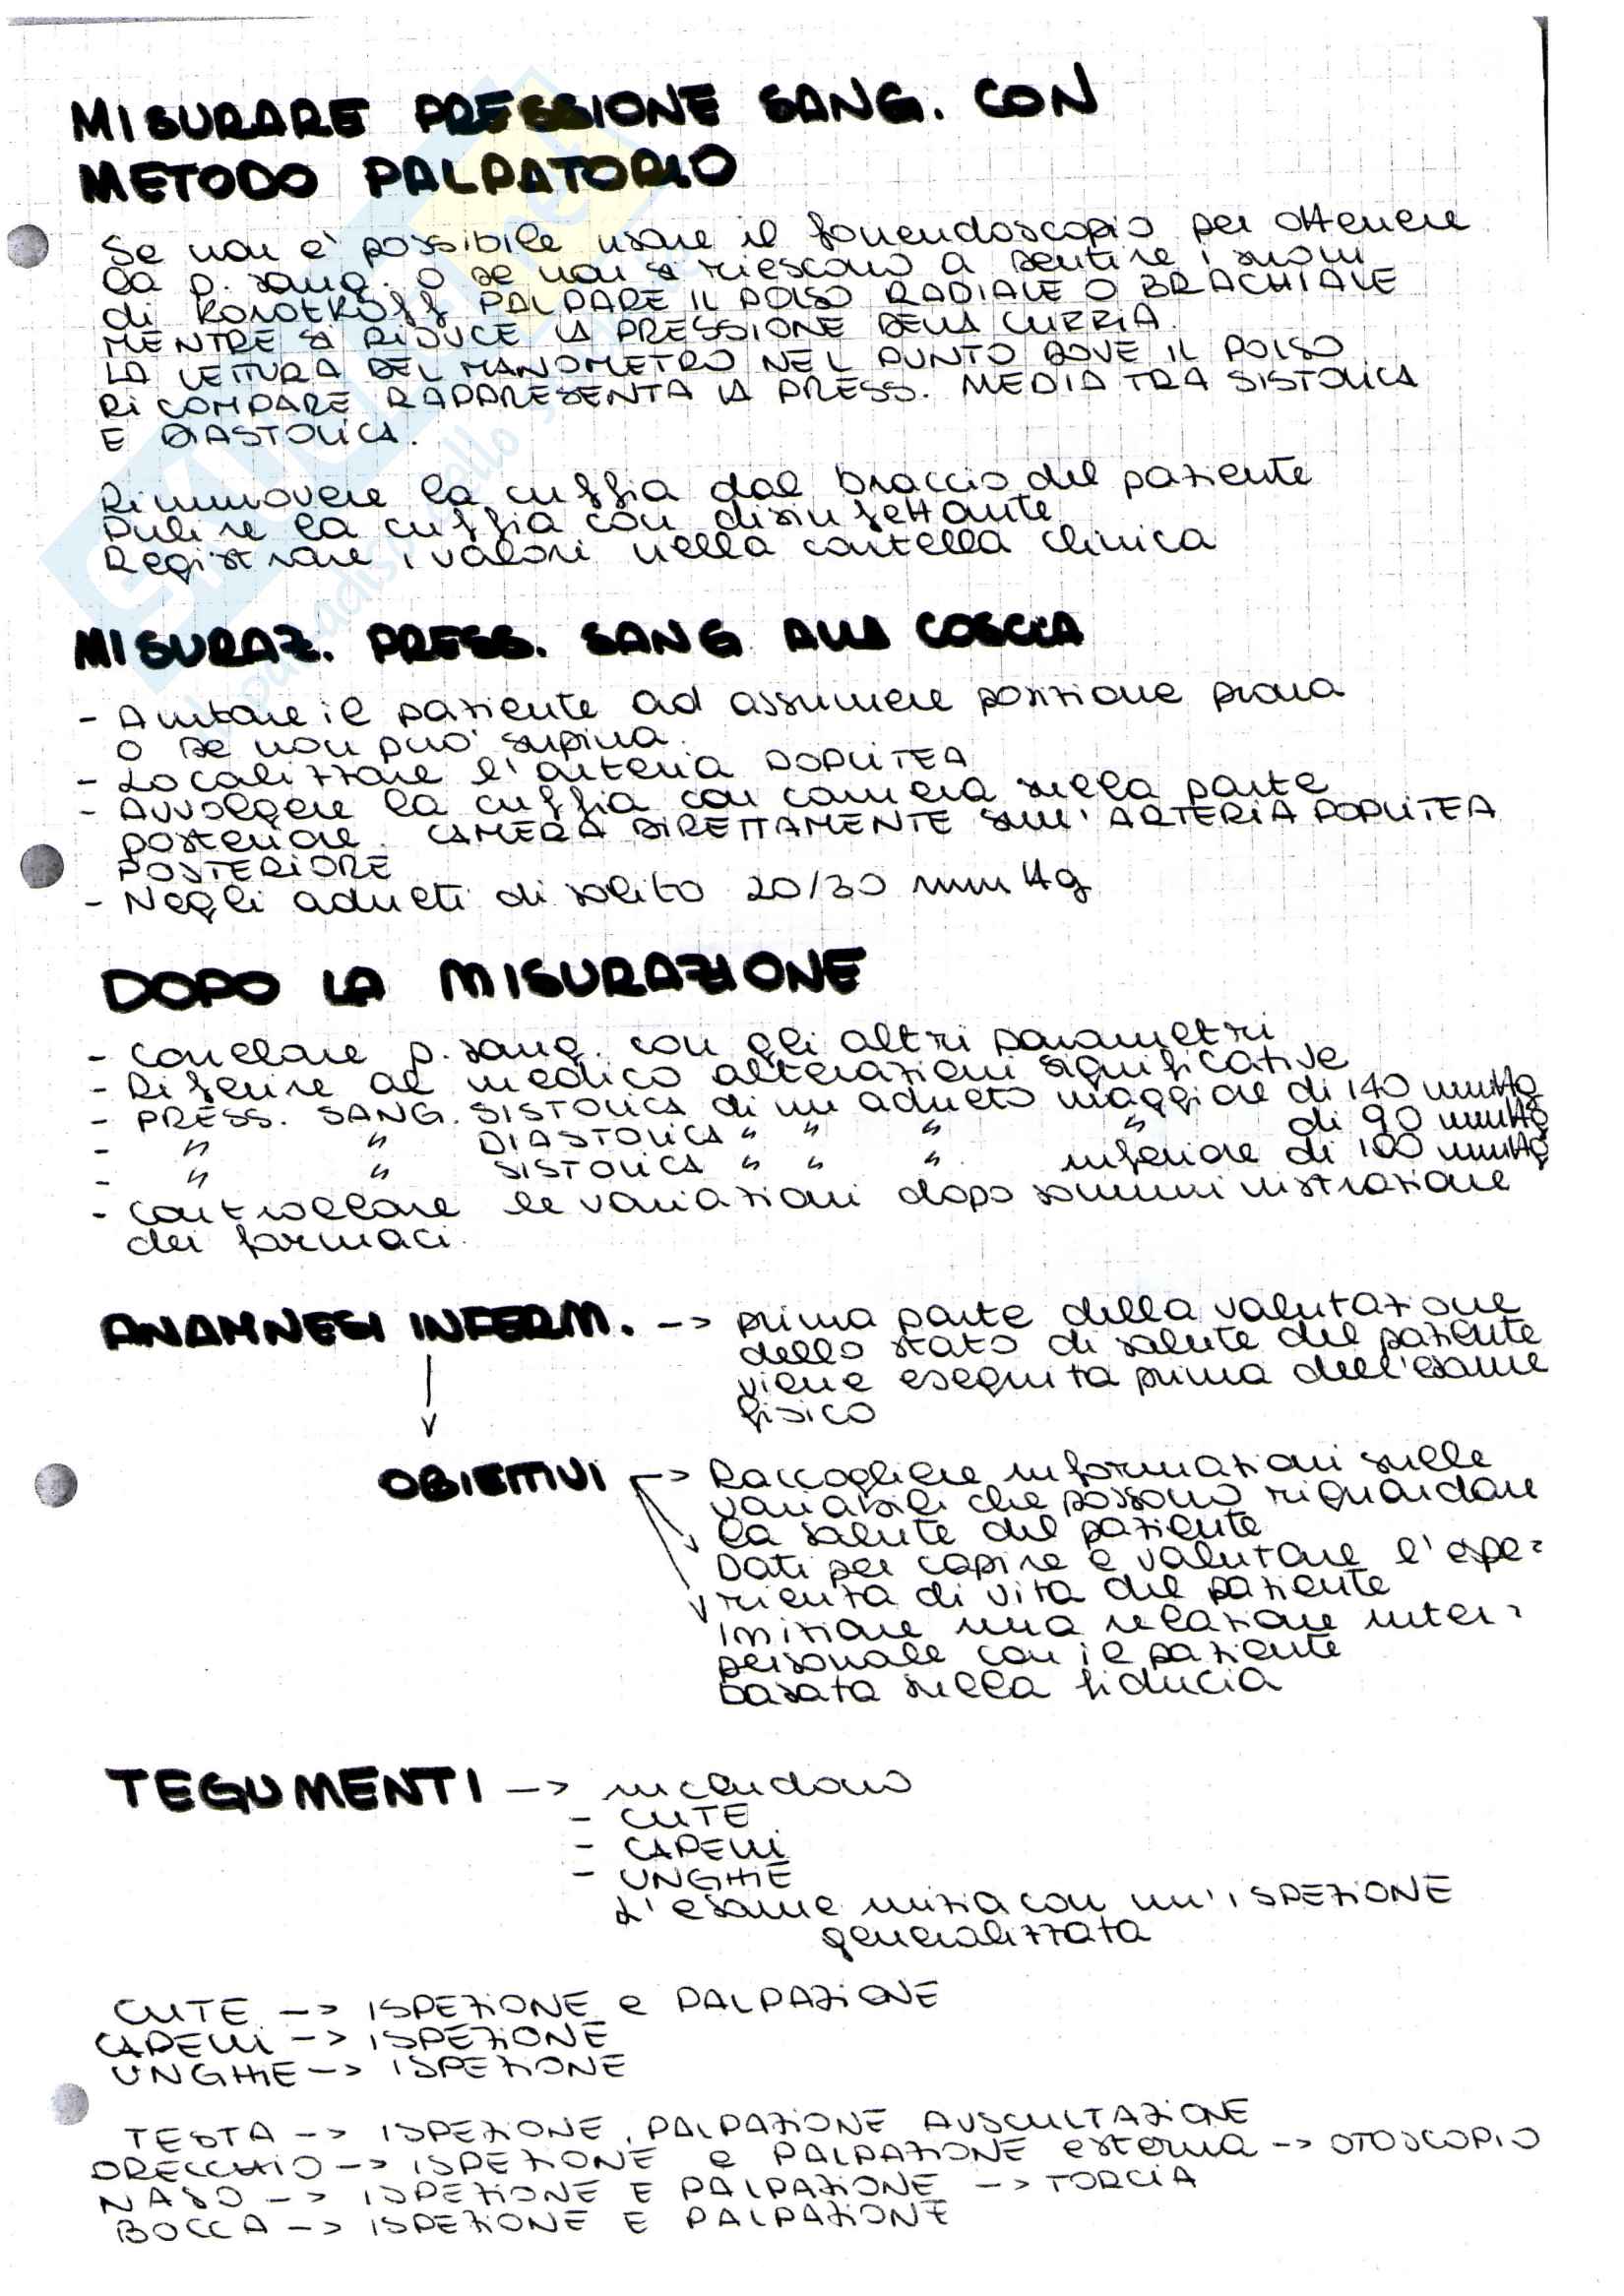 MISURARE PRESSIONE SANG. CON
METODO PALPATORIO
Se non è possibile usare il fonendoscopio per ottenere
la p. sang. o se non si riescono a sentire i suoni
di Korotkoff PALPARE IL POLSO RADIALE O BRACHIALE
MENTRE SI RIDUCE LA PRESSIONE DELLA CUFFIA.
LA LETTURA DEL MANOMETRO NEL PUNTO DOVE IL POLSO
RICOMPARE RAPPRESENTA LA PRESS. MEDIA TRA SISTOLICA
E DIASTOLICA.
Rimuovere la cuffia dal braccio del paziente
Pulire la cuffia con disinfettante
Registrare i valori nella cartella clinica
MISURAZ. PRESS. SANG ALLA COSCIA
- Aiutare il paziente ad assumere posizione prona
o se non può supina.
- Localizzare l'arteria POPLITEA
- Avvolgere la cuffia con camera nella parte
posteriore. CAMERA DIRETTAMENTE SULL'ARTERIA POPLITEA
POSTERIORE
- Negli adulti di solito 20/30 mmHg
DOPO LA MISURAZIONE
- Correlare p. sang. con gli altri parametri
- Riferire al medico alterazioni significative
- PRESS. SANG. SISTOLICA di un adulto maggiore di 140 mmHg
- " " DIASTOLICA " " " " di 90 mmHg
- " " SISTOLICA " " " inferiore di 100 mmHg
- Controllare le variazioni dopo somministrazione
dei farmaci.
ANAMNESI INFERM. -> prima parte della valutazione
dello stato di salute del paziente
viene eseguita prima dell'esame
fisico
OBIETTIVI -> Raccogliere informazioni sulle
variabili che possono riguardare
la salute del paziente
Dati per capire e valutare l'espe=
rienza di vita del paziente
Iniziare una relazione inter=
personale con il paziente
basata sulla fiducia
TEGUMENTI -> includono
- CUTE
- CAPELLI
- UNGHIE
L'esame inizia con un'ISPEZIONE
generalizzata
CUTE -> ISPEZIONE e PALPAZIONE
CAPELLI -> ISPEZIONE
UNGHIE -> ISPEZIONE
TESTA -> ISPEZIONE, PALPAZIONE AUSCULTAZIONE
ORECCHIO -> ISPEZIONE e PALPAZIONE esterna -> OTOSCOPIO
NASO -> ISPEZIONE E PALPAZIONE -> TORCIA
BOCCA -> ISPEZIONE E PALPAZIONE